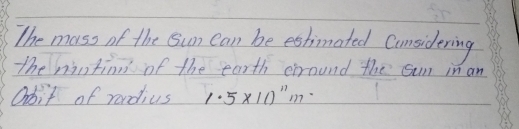 The mass of the Sun can be estimated Cunsidering
the mintion of the earth around the sun in an
Orbit of radius 1.5 x 10¹¹m.